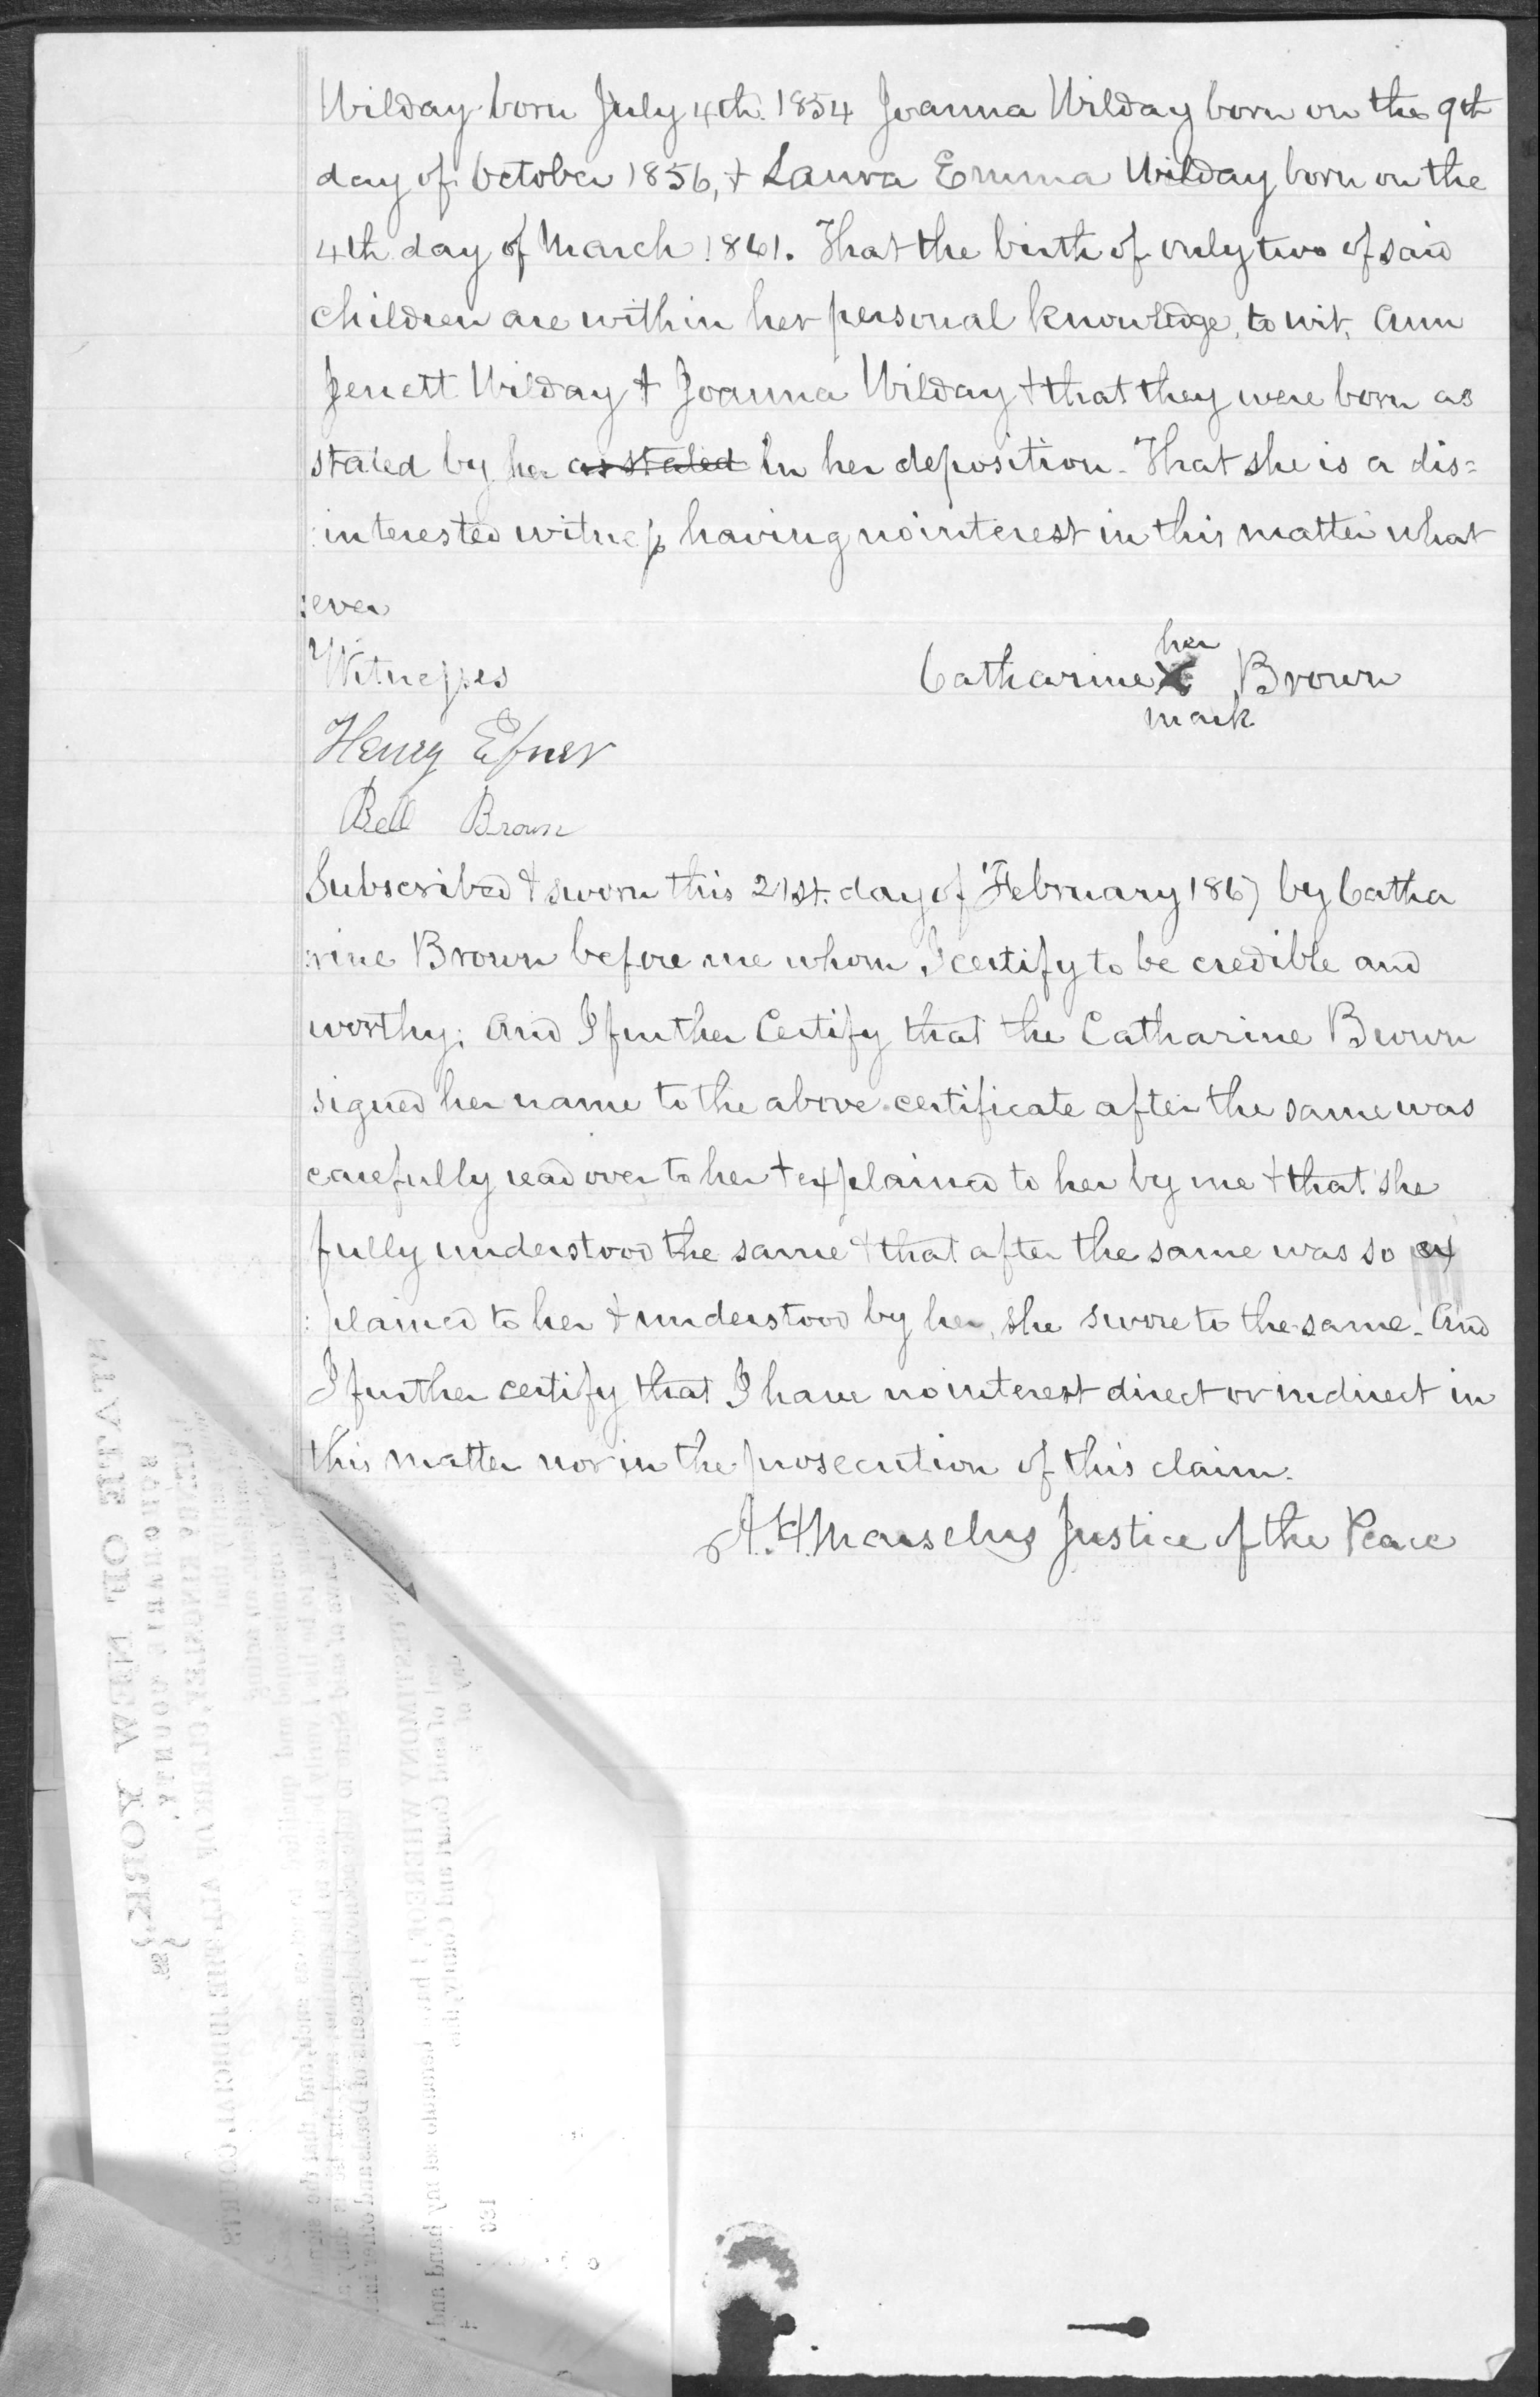 Wilday born July 4th. 1854 Joanna Wilday born on the 9th
day of October 1856, + Laura Emma Wilday born on the
4th day of March 1861. That the birth of only two of said
children are within her personal knowledge, to wit, Ann
Jenett Wilday + Joanna Wilday + that they were born as
stated by her as stated in her deposition. That she is a dis=
:interested witness having no interest in this matter what
:ever
Witnesses
her
Catharine X Brown
mark
Henry Efner
Bell Brown
Subscribed + sworn this 21st. day of February 1867 by Catha
:rine Brown before me whom I certify to be credible and
worthy; And I further Certify that the Catharine Brown
signed her name to the above certificate after the same was
carefully read over to her + explained to her by me + that she
fully understood the same + that after the same was so ex
:plained to her + understood by her, she swore to the same. And
I further certify that I have no interest direct or indirect in
this matter nor in the prosecution of this claim.
A. H. Marselus Justice of the Peace
STATE OF NEW YORK, } ss.
SCHOHARIE COUNTY,